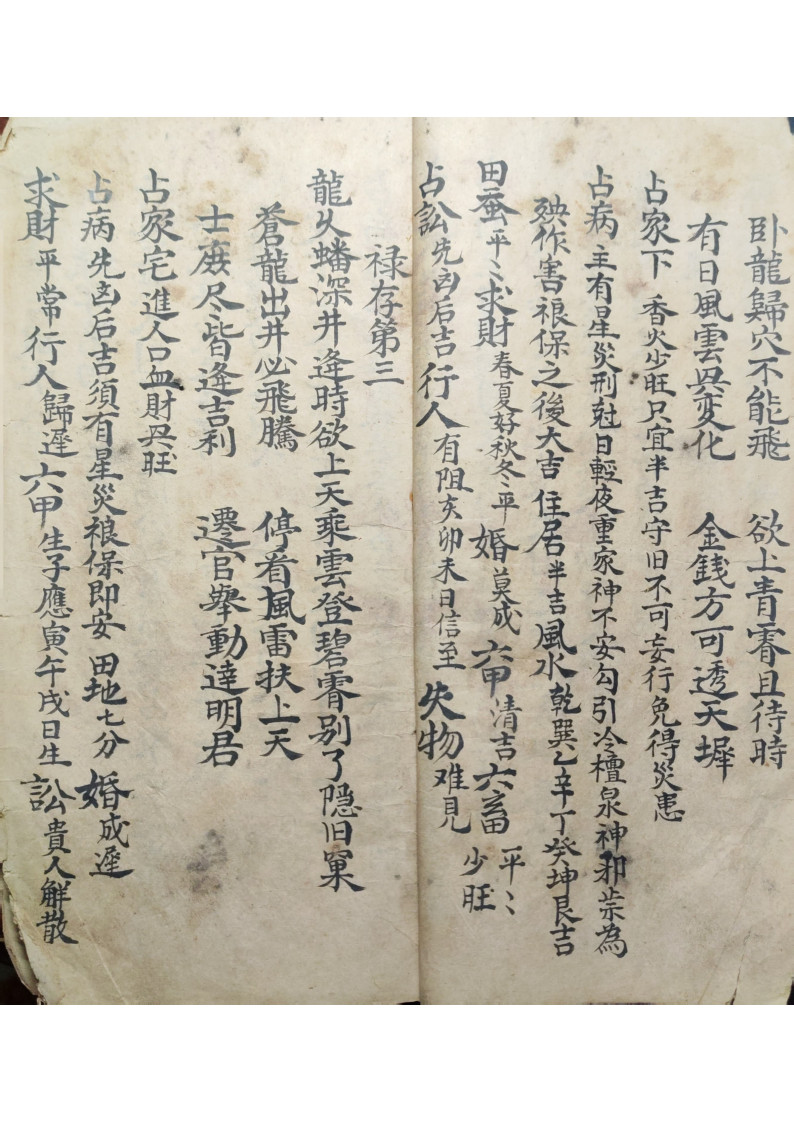 卧龍歸穴不能飛　欲上青霄且待時
有日風雲與变化　金銭方可透天墀
占家下　香火少旺只宜半吉守旧不可妄行免得災患
占病　主有星災刑尅日輕夜重家神不安勾引冷檀泉神邪祟為
殃作害禳保之後大吉　住居半吉　風水乾巽乙辛丁癸坤艮吉
田蚕平〻求財春夏好秋冬平　婚莫成　六甲清吉　六畜平〻少旺
占訟先凶后吉　行人有阻亥卯未日信至　失物难見
禄存第三
龍久蟠深井逢時欲上天乘雲登碧霄别了隐旧窠
蒼龍出井必飛騰　停看風雷扶上天
士庶尽皆逢吉利　遷官舉動達明君
占家宅進人口血財兴旺
占病先凶后吉須有星災禳保即安　田地七分　婚成遲
求財平常　行人歸遲　六甲生子應寅午戌日生　訟貴人解散